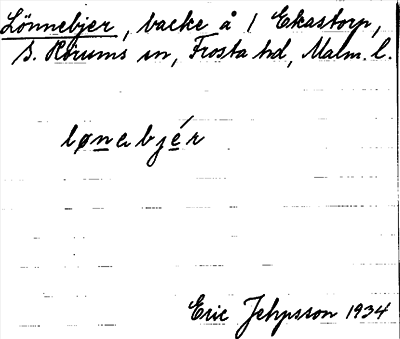 Lönnebjer, backe å 1 Ekastorp,
S. Hörums sn, Frosta hd, Malm. l.
lønebjér
Eric Jehpsson 1934